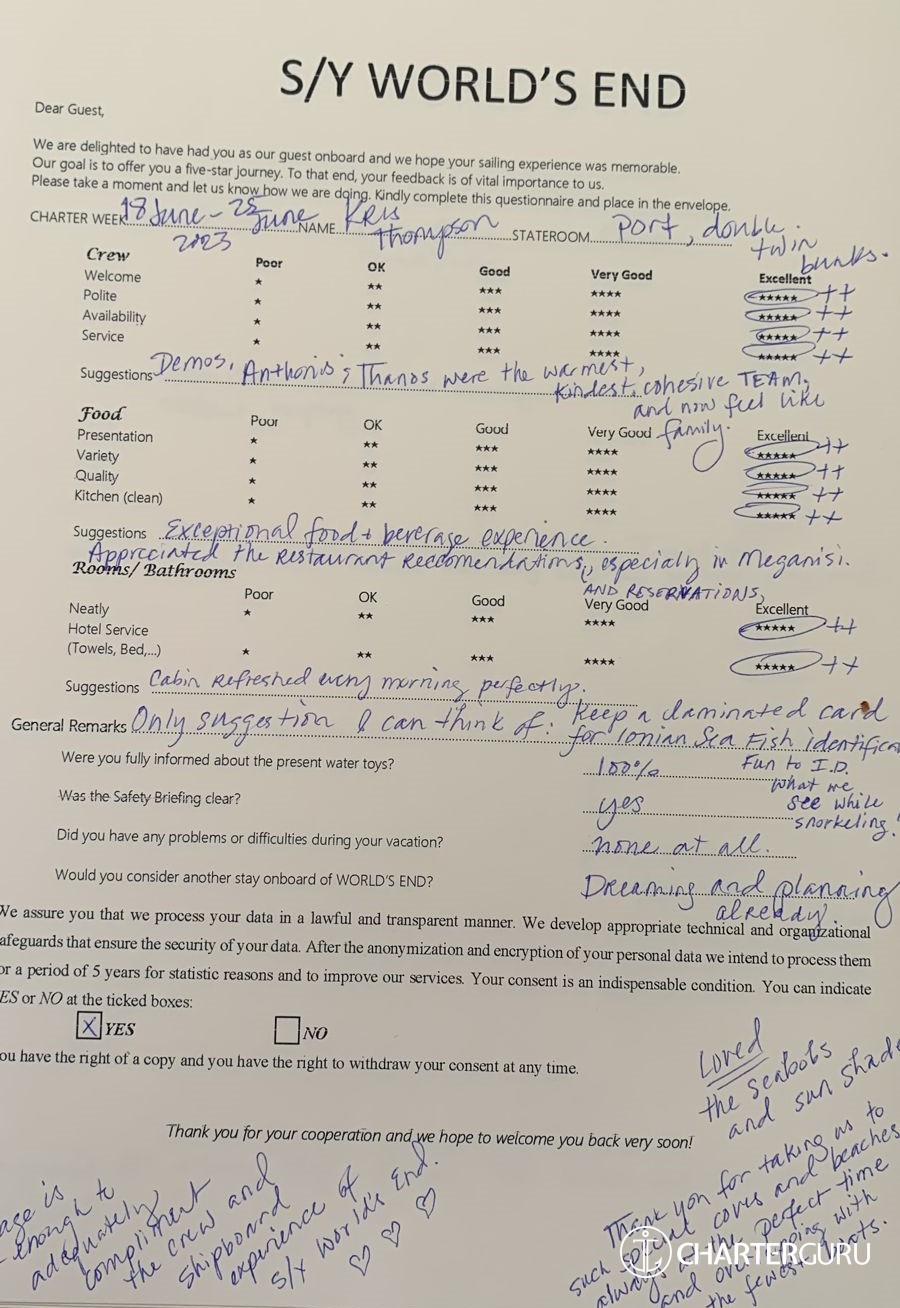 S/Y WORLD'S END
Dear Guest,
We are delighted to have had you as our guest onboard and we hope your sailing experience was memorable.
Our goal is to offer you a five-star journey. To that end, your feedback is of vital importance to us.
Please take a moment and let us know how we are doing. Kindly complete this questionnaire and place in the envelope.
CHARTER WEEK 18 June - 25 June 2023 NAME Kris Thompson STATEROOM Port, double. twin bunks.
Crew Poor OK Good Very Good Excellent
Welcome ★ ★★ ★★★ ★★★★ ★★★★★ ++
Polite ★ ★★ ★★★ ★★★★ ★★★★★ ++
Availability ★ ★★ ★★★ ★★★★ ★★★★★ ++
Service ★ ★★ ★★★ ★★★★ ★★★★★ ++
Suggestions Demos, Anthonis & Thanos were the warmest,
kindest, cohesive TEAM,
and now feel like
family.
Food Poor OK Good Very Good Excellent
Presentation ★ ★★ ★★★ ★★★★ ★★★★★ ++
Variety ★ ★★ ★★★ ★★★★ ★★★★★ ++
Quality ★ ★★ ★★★ ★★★★ ★★★★★ ++
Kitchen (clean) ★ ★★ ★★★ ★★★★ ★★★★★ ++
Suggestions Exceptional food + beverage experience.
Appreciated the Restaurant Reccomendations, especially in Meganisi.
AND RESERVATIONS,
Rooms/ Bathrooms
Poor OK Good Very Good Excellent
Neatly ★ ★★ ★★★ ★★★★ ★★★★★ ++
Hotel Service
(Towels, Bed,...) ★ ★★ ★★★ ★★★★ ★★★★★ ++
Suggestions Cabin refreshed every morning perfectly.
General Remarks Only suggestion I can think of: Keep a laminated card
for Ionian Sea Fish identifica
Fun to I.D.
what we
see while
snorkeling!
Were you fully informed about the present water toys? 100%
Was the Safety Briefing clear? yes
Did you have any problems or difficulties during your vacation? none at all.
Would you consider another stay onboard of WORLD'S END? Dreaming and planning
already.
We assure you that we process your data in a lawful and transparent manner. We develop appropriate technical and organizational
afeguards that ensure the security of your data. After the anonymization and encryption of your personal data we intend to process them
or a period of 5 years for statistic reasons and to improve our services. Your consent is an indispensable condition. You can indicate
ES or NO at the ticked boxes:
X YES NO
ou have the right of a copy and you have the right to withdraw your consent at any time.
Thank you for your cooperation and we hope to welcome you back very soon!
Loved
the seabobs
and sun shade
age is
enough to
adequately
compliment
the crew and
shipboard
experience of
S/Y World's End.
♡ ♡ ♡
Thank you for taking us to
such special coves and beaches
always at the perfect time
and with
the fewest
CHARTERGURU